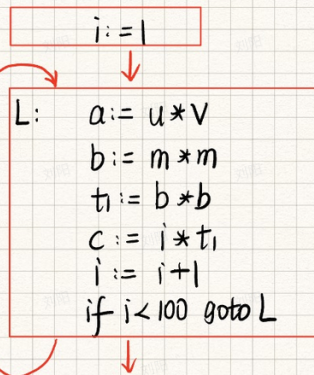 i:=1
L: a:= u*v
b:= m*m
t₁:= b*b
c:= i*t₁
i:= i+1
if i<100 goto L